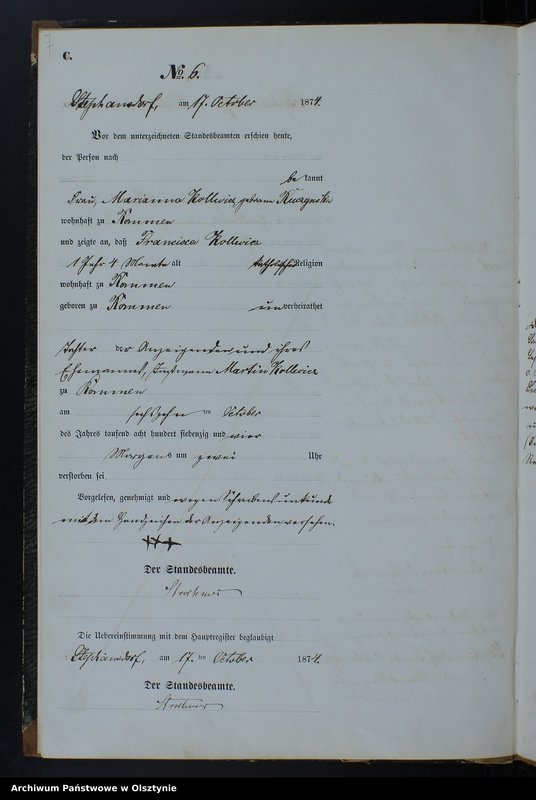 7
C.
No. 6.
Stephansdorf, am 17. October 1874.
Vor dem unterzeichneten Standesbeamten erschien heute,
der Person nach
bekannt
Frau, Marianna Kollewicz, geborene
wohnhaft zu Kommen
und zeigte an, daß Francisca Kollewicz
1 Jahr 4 Monate alt katholischer Religion
wohnhaft zu Kommen
geboren zu Kommen unverheirathet
Tochter der Anzeigenden und ihres
Ehemannes, Martin Kollewicz
zu Kommen
am sechszehnten October
des Jahres tausend acht hundert siebenzig und vier
Morgens um zwei Uhr
verstorben sei.
Vorgelesen, genehmigt und wegen Schreibensunkunde
mit dem Handzeichen der Anzeigenden versehen.
+++
Der Standesbeamte.
Die Uebereinstimmung mit dem Hauptregister beglaubigt
Stephansdorf, am 17. ten October 1874.
Der Standesbeamte.
Archiwum Państwowe w Olsztynie